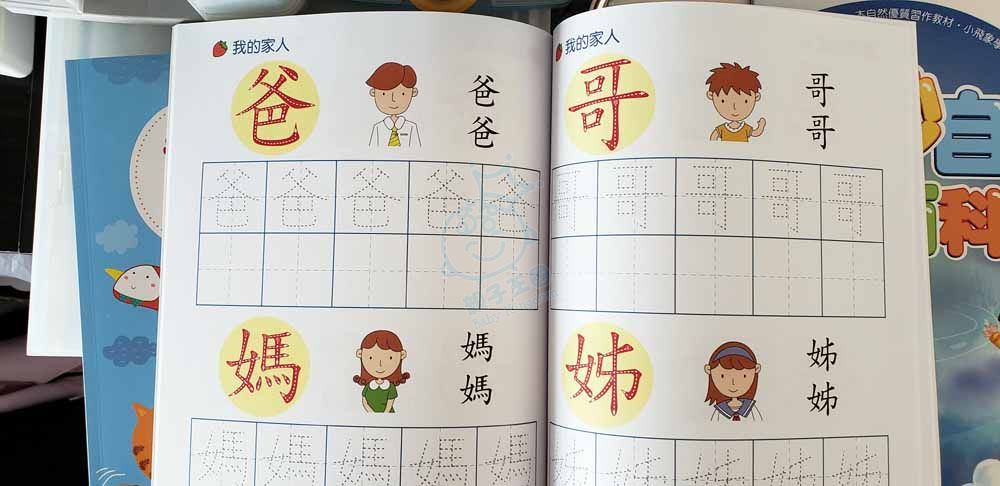 我的家人
爸
爸
爸
爸 爸 爸 爸 爸
媽
媽
媽
媽 媽 媽 媽 媽
我的家人
哥
哥
哥
哥 哥 哥 哥 哥
姊
姊
姊
姊 姊 姊 姊 姊
本自然優質習作教材，小飛象學
自
科